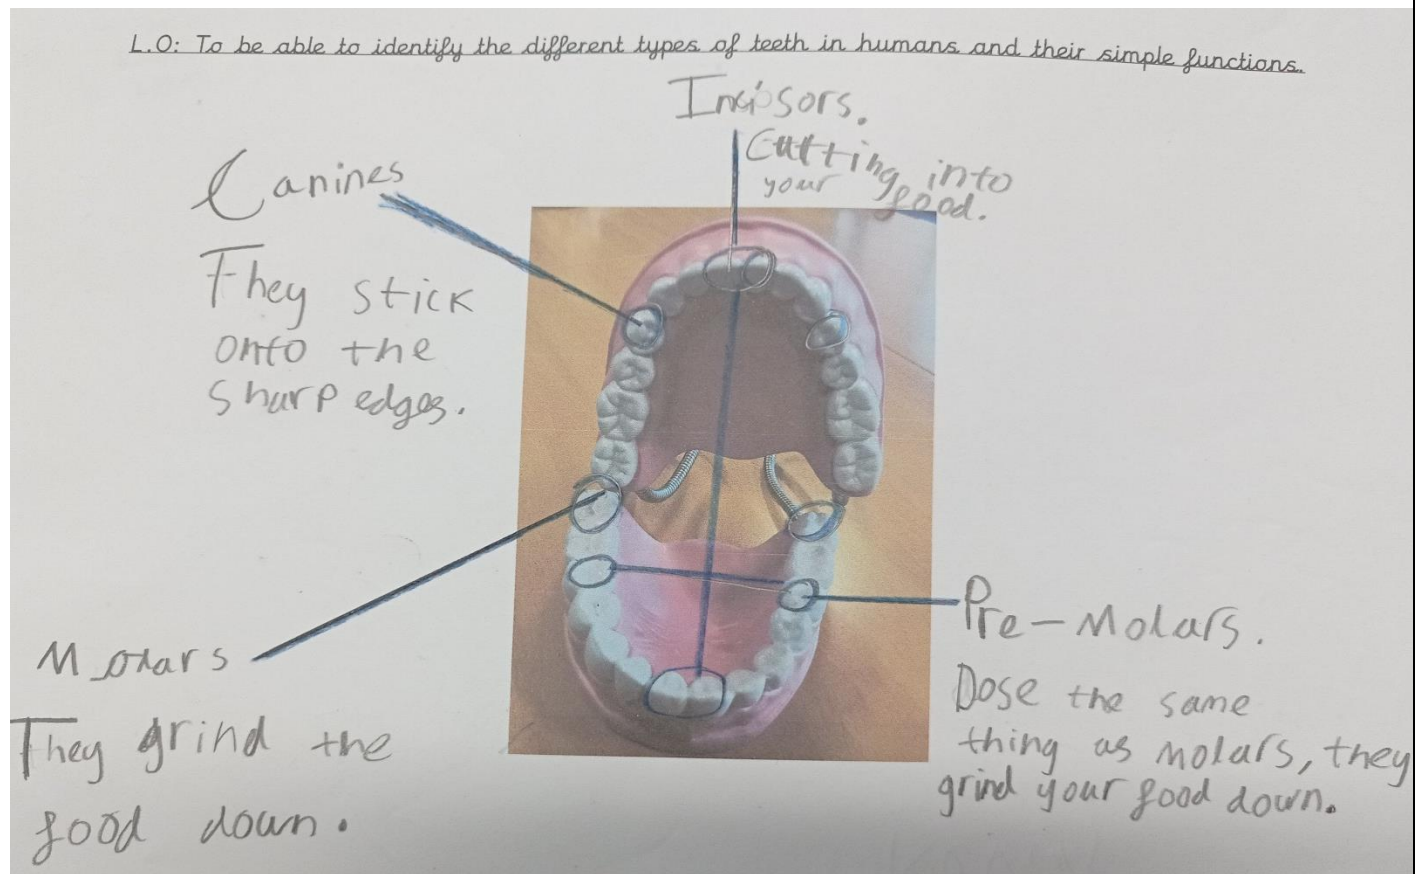 L.O: To be able to identify the different types of teeth in humans and their simple functions.
Incisors.
Cutting into
your food.
Canines
They stick
onto the
sharp edges.
Molars
They grind the
food down.
Pre-Molars.
Dose the same
thing as molars, they
grind your food down.